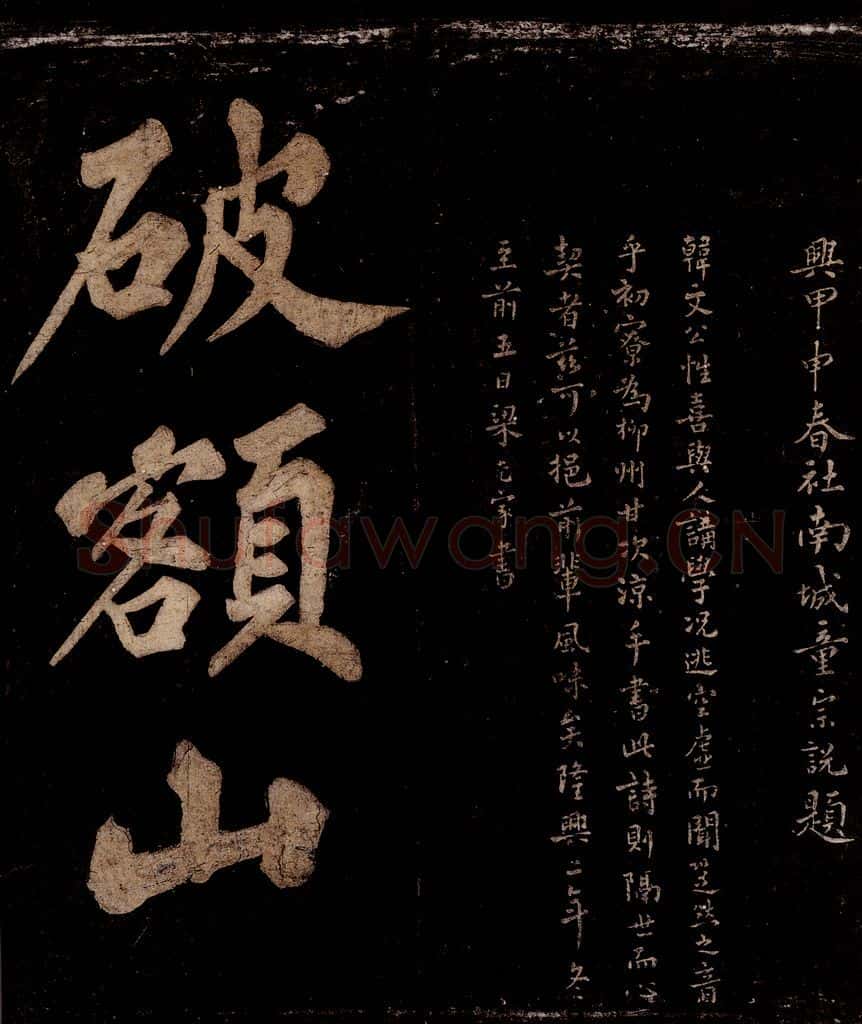 興甲申春社南城童宗說題
韓文公性喜與人講學況逃空虛而聞跫然之音
乎初寮為柳州甘次涼手書此詩則隔世而心
契者茲可以挹前輩風味矣隆興二年冬
至前五日梁書
破額山
Shufawang.CN